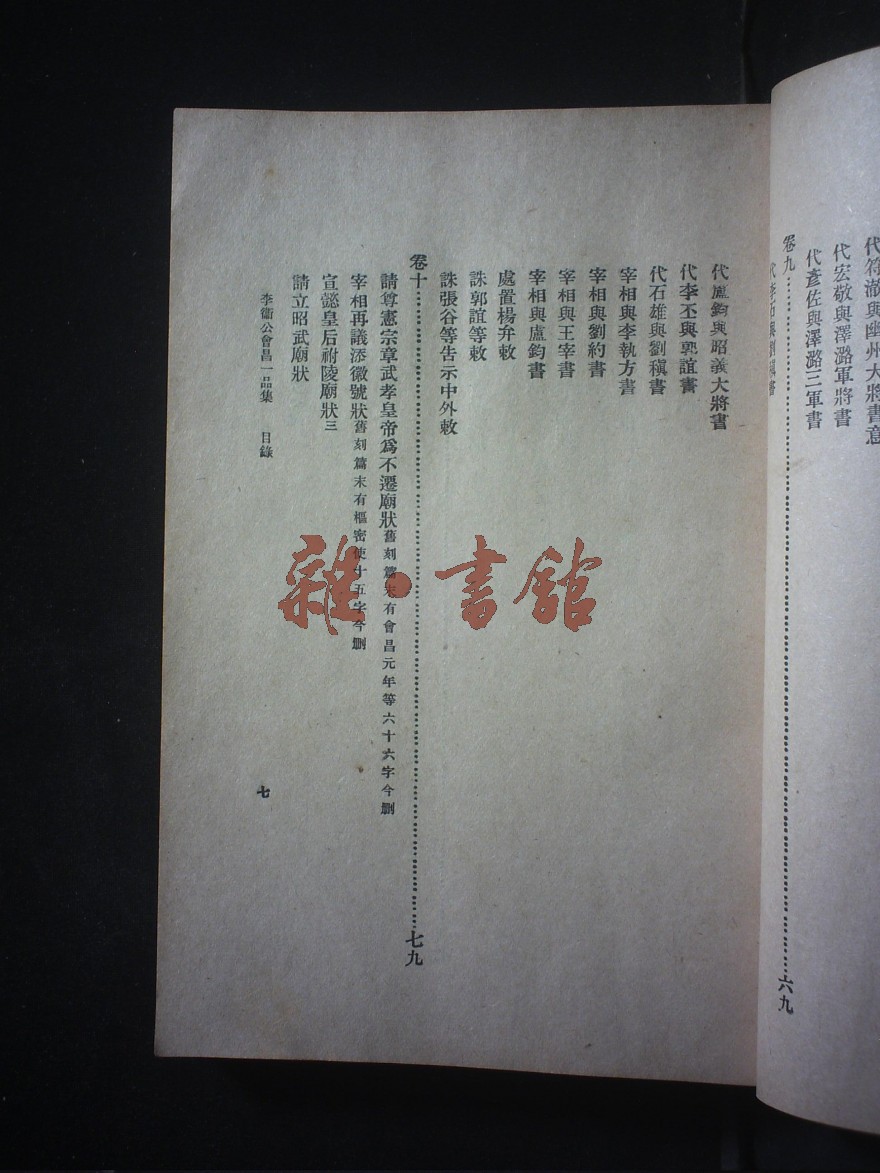 代符澈與幽州大將書意
代宏敬與澤潞軍將書
代彥佐與澤潞三軍書
卷九……六九
代李石與劉稹書
代盧鈞與昭義大將書
代李丕與郭誼書
代石雄與劉稹書
宰相與李執方書
宰相與劉約書
宰相與王宰書
宰相與盧鈞書
處置楊弁敕
誅郭誼等敕
誅張谷等告示中外敕
卷十……七九
請尊憲宗章武孝皇帝爲不遷廟狀舊刻篇末有會昌元年等六十六字今刪
宰相再議添徽號狀舊刻篇末有樞密使十五字今刪
宣懿皇后祔陵廟狀三
請立昭武廟狀
李衞公會昌一品集 目錄
七
雜·書館